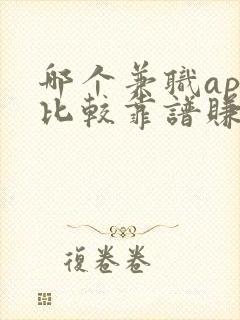 哪个兼職ap
比較靠譜賺
復卷卷